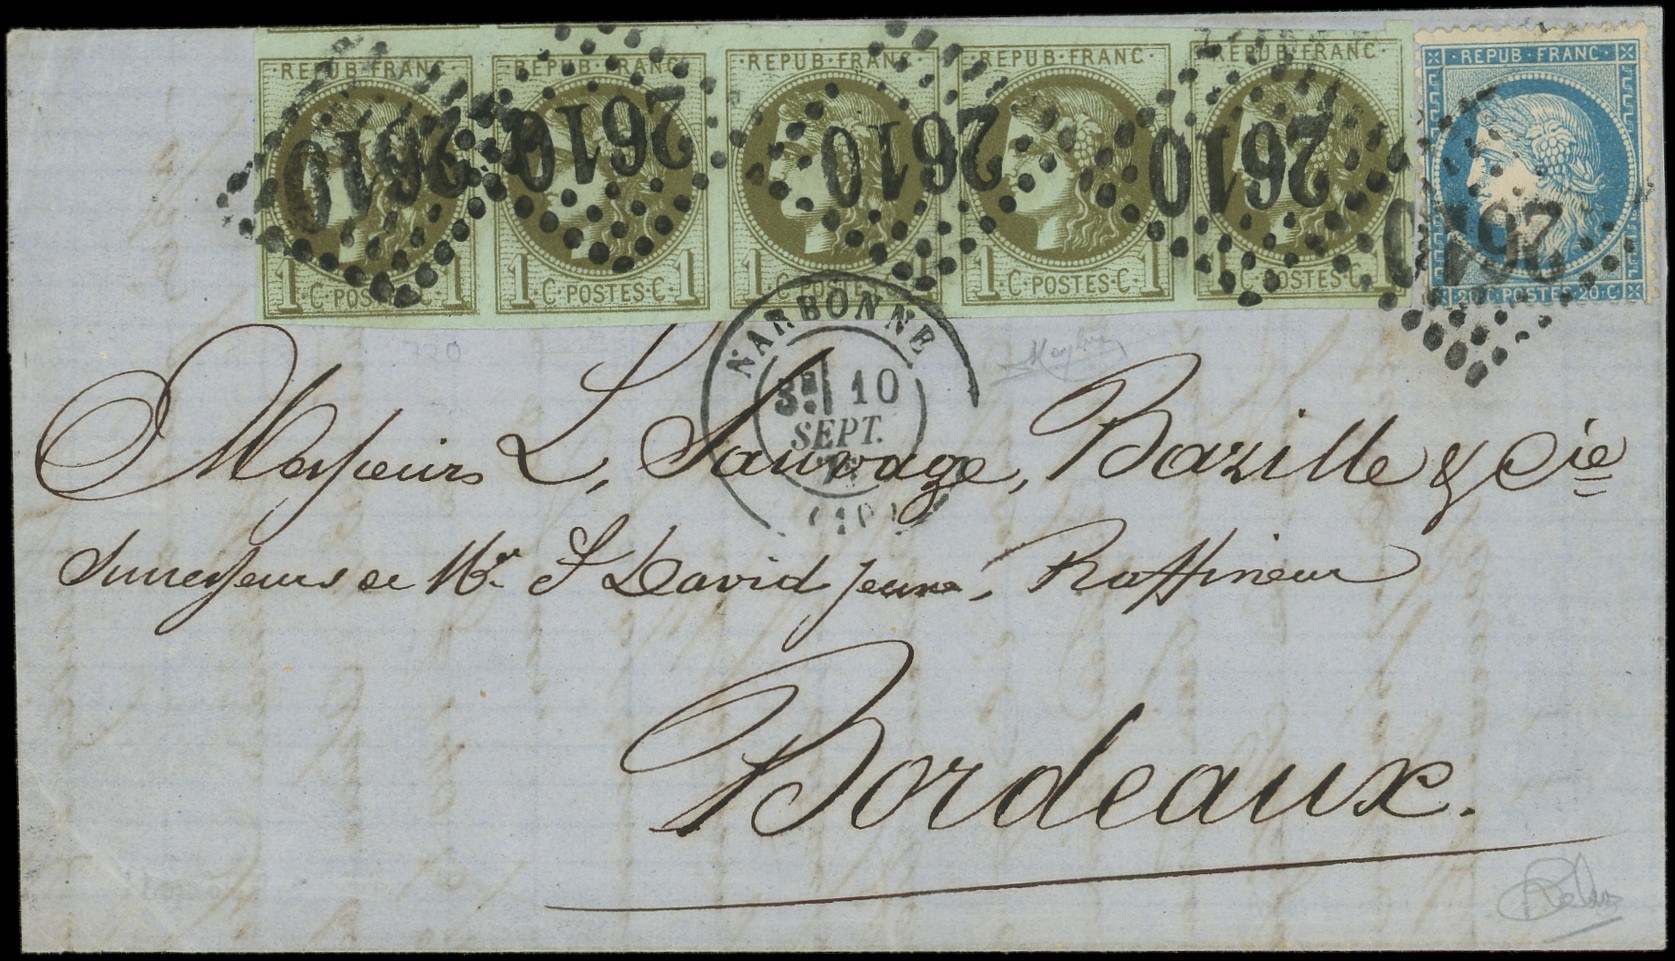 REPUB·FRANC REPUB·FRANC REPUB·FRANC REPUB·FRANC REPUB·FRANC REPUB·FRANC
2610 2610 2610 2610 2610 2610
1 C·POSTES·C 1 1 C·POSTES·C 1 1 C·POSTES·C 1 1 C·POSTES·C 1 1 C·POSTES·C 1 20·C·POSTES·20·C
NARBONNE
10
SEPT.
Messieurs L. Sauvage, Bazille & Cie
Successeurs de Mr. S David jeune, Raffineur
Bordeaux.